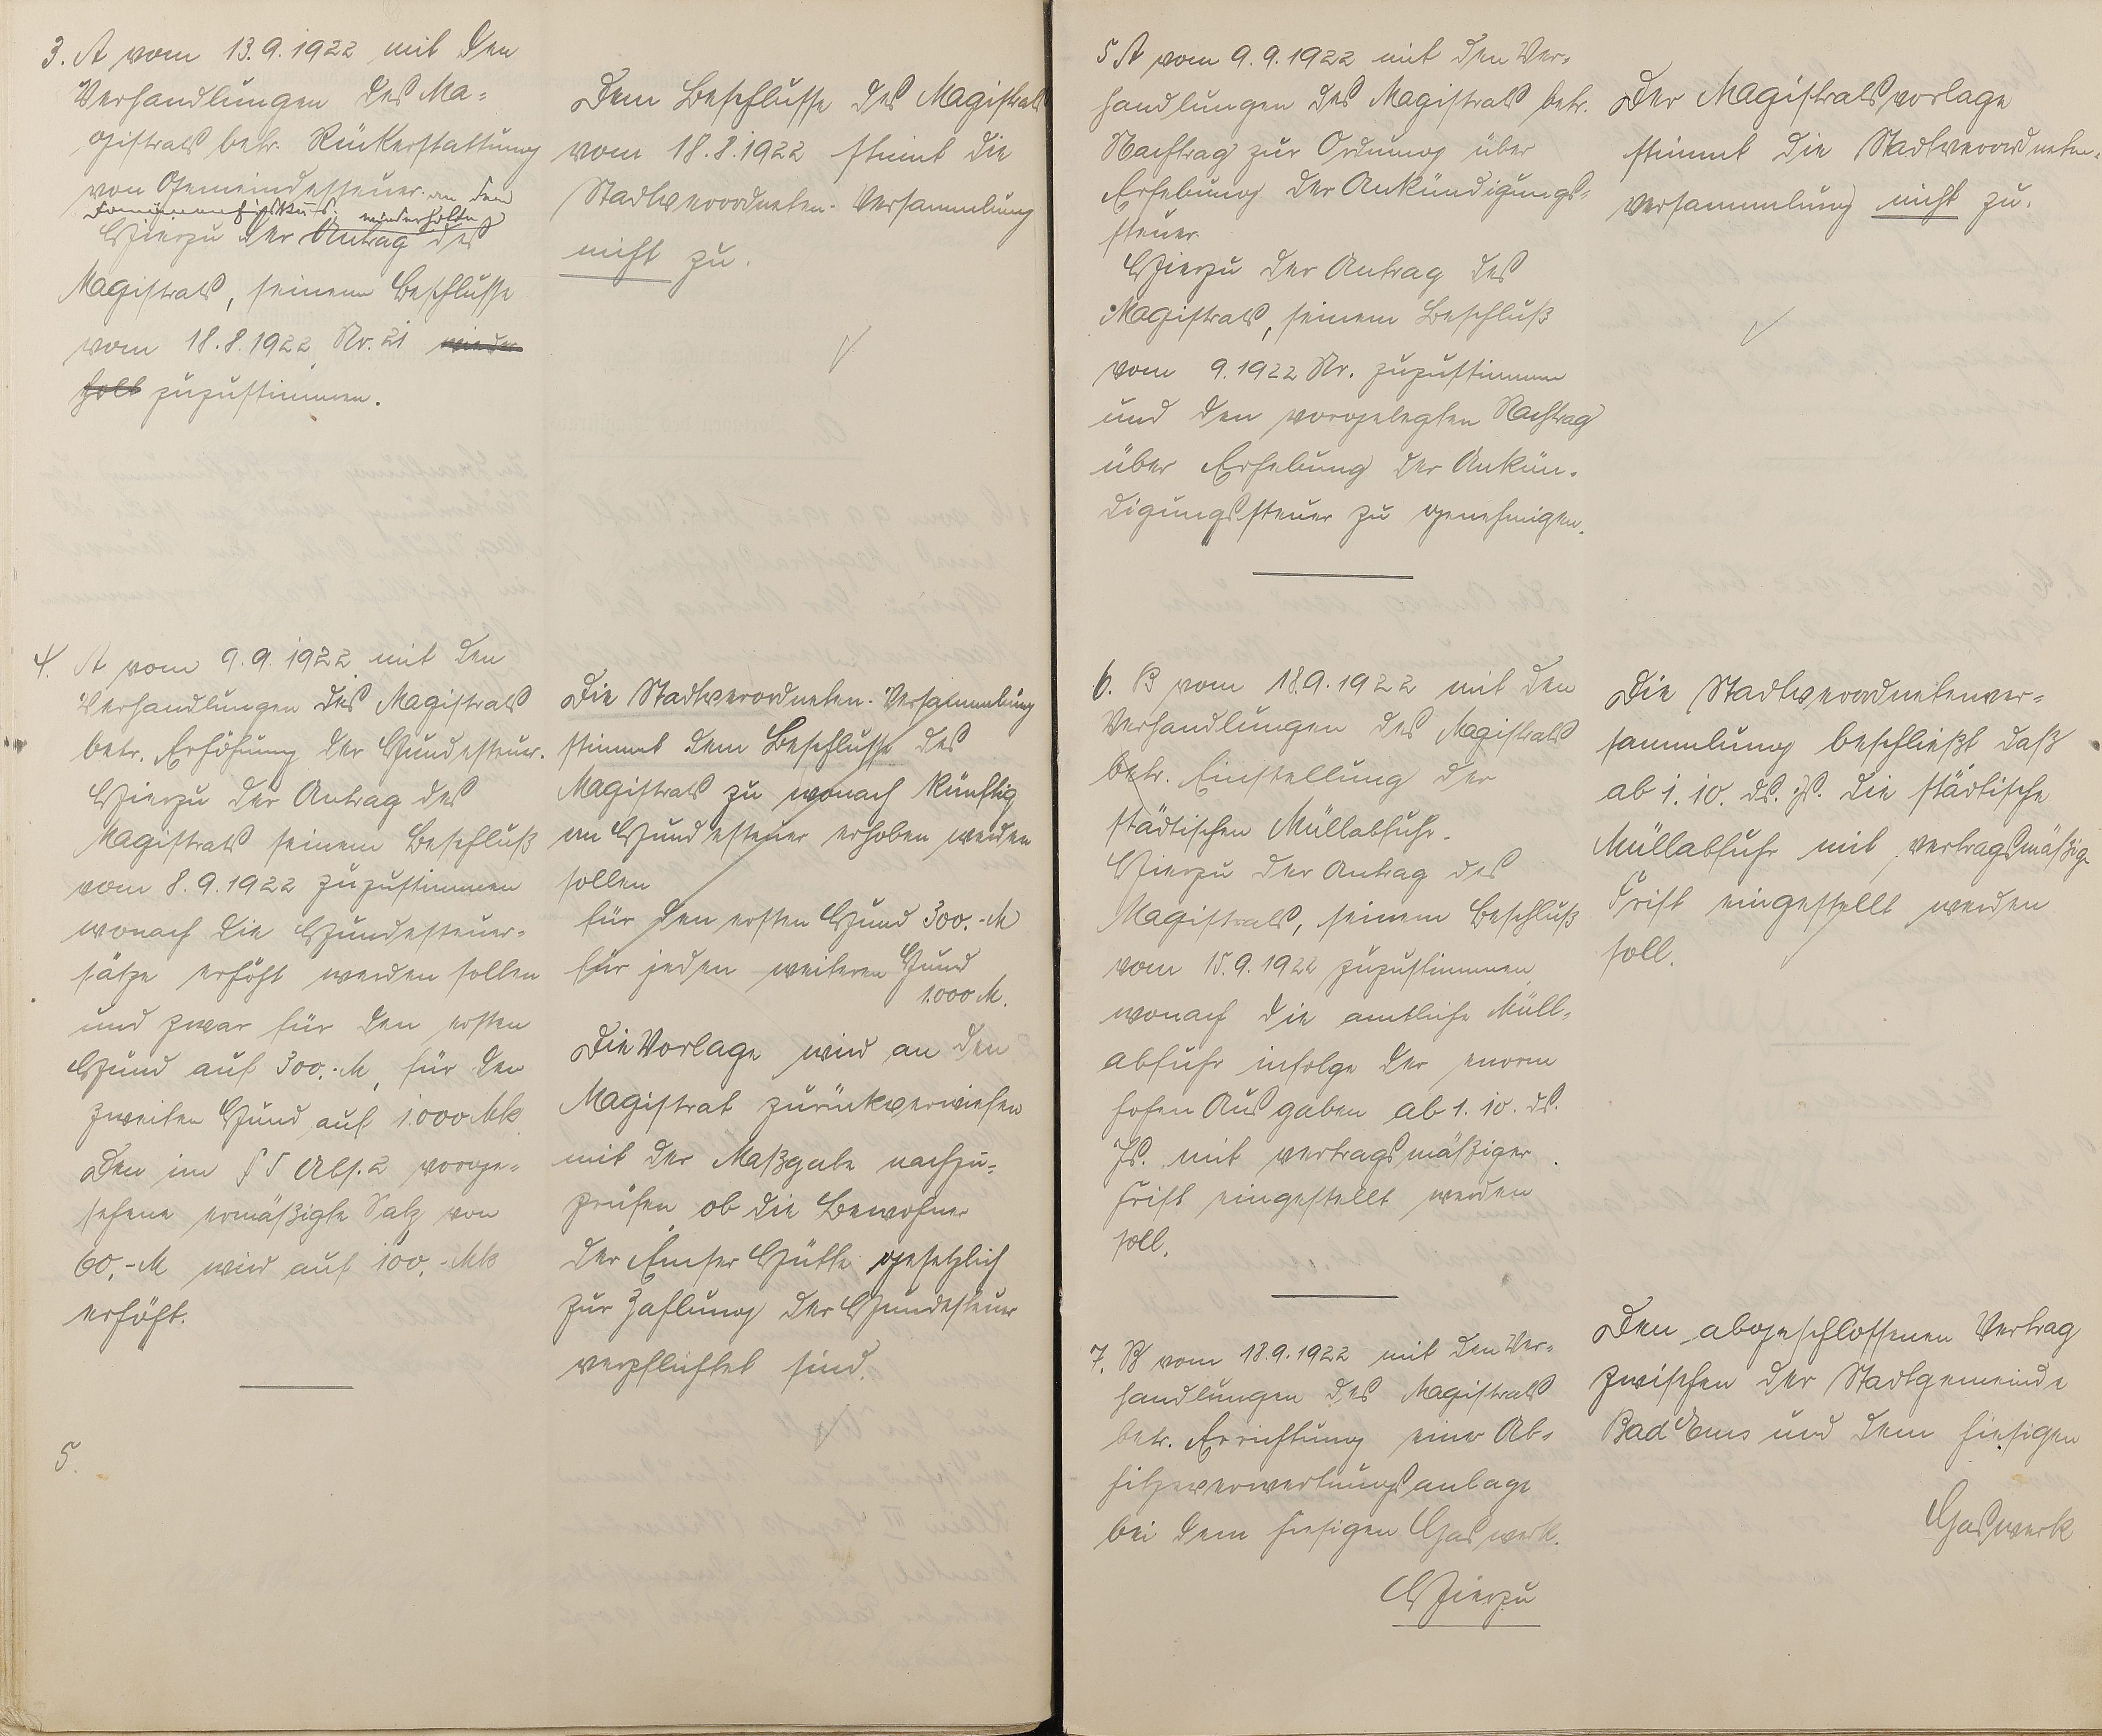 3. A vom 13.9.1922 mit den
Verhandlungen des Ma-
gistrats betr. Rückerstattung
von Gemeindesteuer an den
Domänenfiskus.
wiederholte
Hierzu der Antrag des
Magistrats, seinem Beschlusse
vom 18.8.1922 Nr. 21 wieder
holt zuzustimmen.
Dem Beschlusse des Magistrats
vom 18.8.1922 stimmt die
Stadtverordneten-Versammlung
nicht zu.
4. A vom 9.9.1922 mit den
Verhandlungen des Magistrats
betr. Erhöhung der Hundesteuer.
Hierzu der Antrag des
Magistrats seinem Beschluß
vom 8.9.1922 zuzustimmen
wonach die Hundesteuer-
sätze erhöht werden sollen
und zwar für den ersten
Hund auf 300,-M, für den
zweiten Hund auf 1000 Mk.
Den im § 5 Abs. 2 vorge-
sehene ermäßigte Satz von
60,-M wird auf 100,-Mk
erhöht.
Die Stadtverordneten-Versammlung
stimmt dem Beschlusse des
Magistrats zu wonach künftig
an Hundesteuer erhoben werden
sollen
für den ersten Hund 300.-M
für jeden weiteren Hund
1000 M.
Die Vorlage wird an den
Magistrat zurückverwiesen
mit der Maßgabe nachzu-
prüfen, ob die Bewohner
der Emser Hütte gesetzlich
zur Zahlung der Hundesteuer
verpflichtet sind.
5.
5 A vom 9.9.1922 mit den Ver-
handlungen des Magistrats betr.
Nachtrag zur Ordnung über
Erhebung der Ankündigungs-
steuer.
Hierzu der Antrag des
Magistrats, seinem Beschluß
vom 9.1922 Nr. zuzustimmen
und den vorgelegten Nachtrag
über Erhebung der Ankün-
digungssteuer zu genehmigen.
Der Magistratsvorlage
stimmt die Stadtverordneten-
versammlung nicht zu.
6. B vom 18.9.1922 mit den
Verhandlungen des Magistrats
betr. Einstellung der
städtischen Müllabfuhr.
Hierzu der Antrag des
Magistrats, seinem Beschluß
vom 15.9.1922 zuzustimmen,
wonach die amtliche Müll-
abfuhr infolge der enorm
hohen Ausgaben ab 1.10. ds.
Js. mit vertragsmäßiger
Frist eingestellt werden
soll.
Die Stadtverordnetenver-
sammlung beschließt daß
ab 1.10. ds. Js. die städtische
Müllabfuhr mit vertragsmäßig
Frist eingestellt werden
soll.
7. B vom 18.9.1922 mit den Ver-
handlungen des Magistrats
betr. Errichtung einer Ab-
hitzeverwertungsanlage
bei dem hiesigen Gaswerk.
Hierzu
Den abgeschlossenen Vertrag
zwischen der Stadtgemeinde
Bad Ems und dem hiesigen
Gaswerk